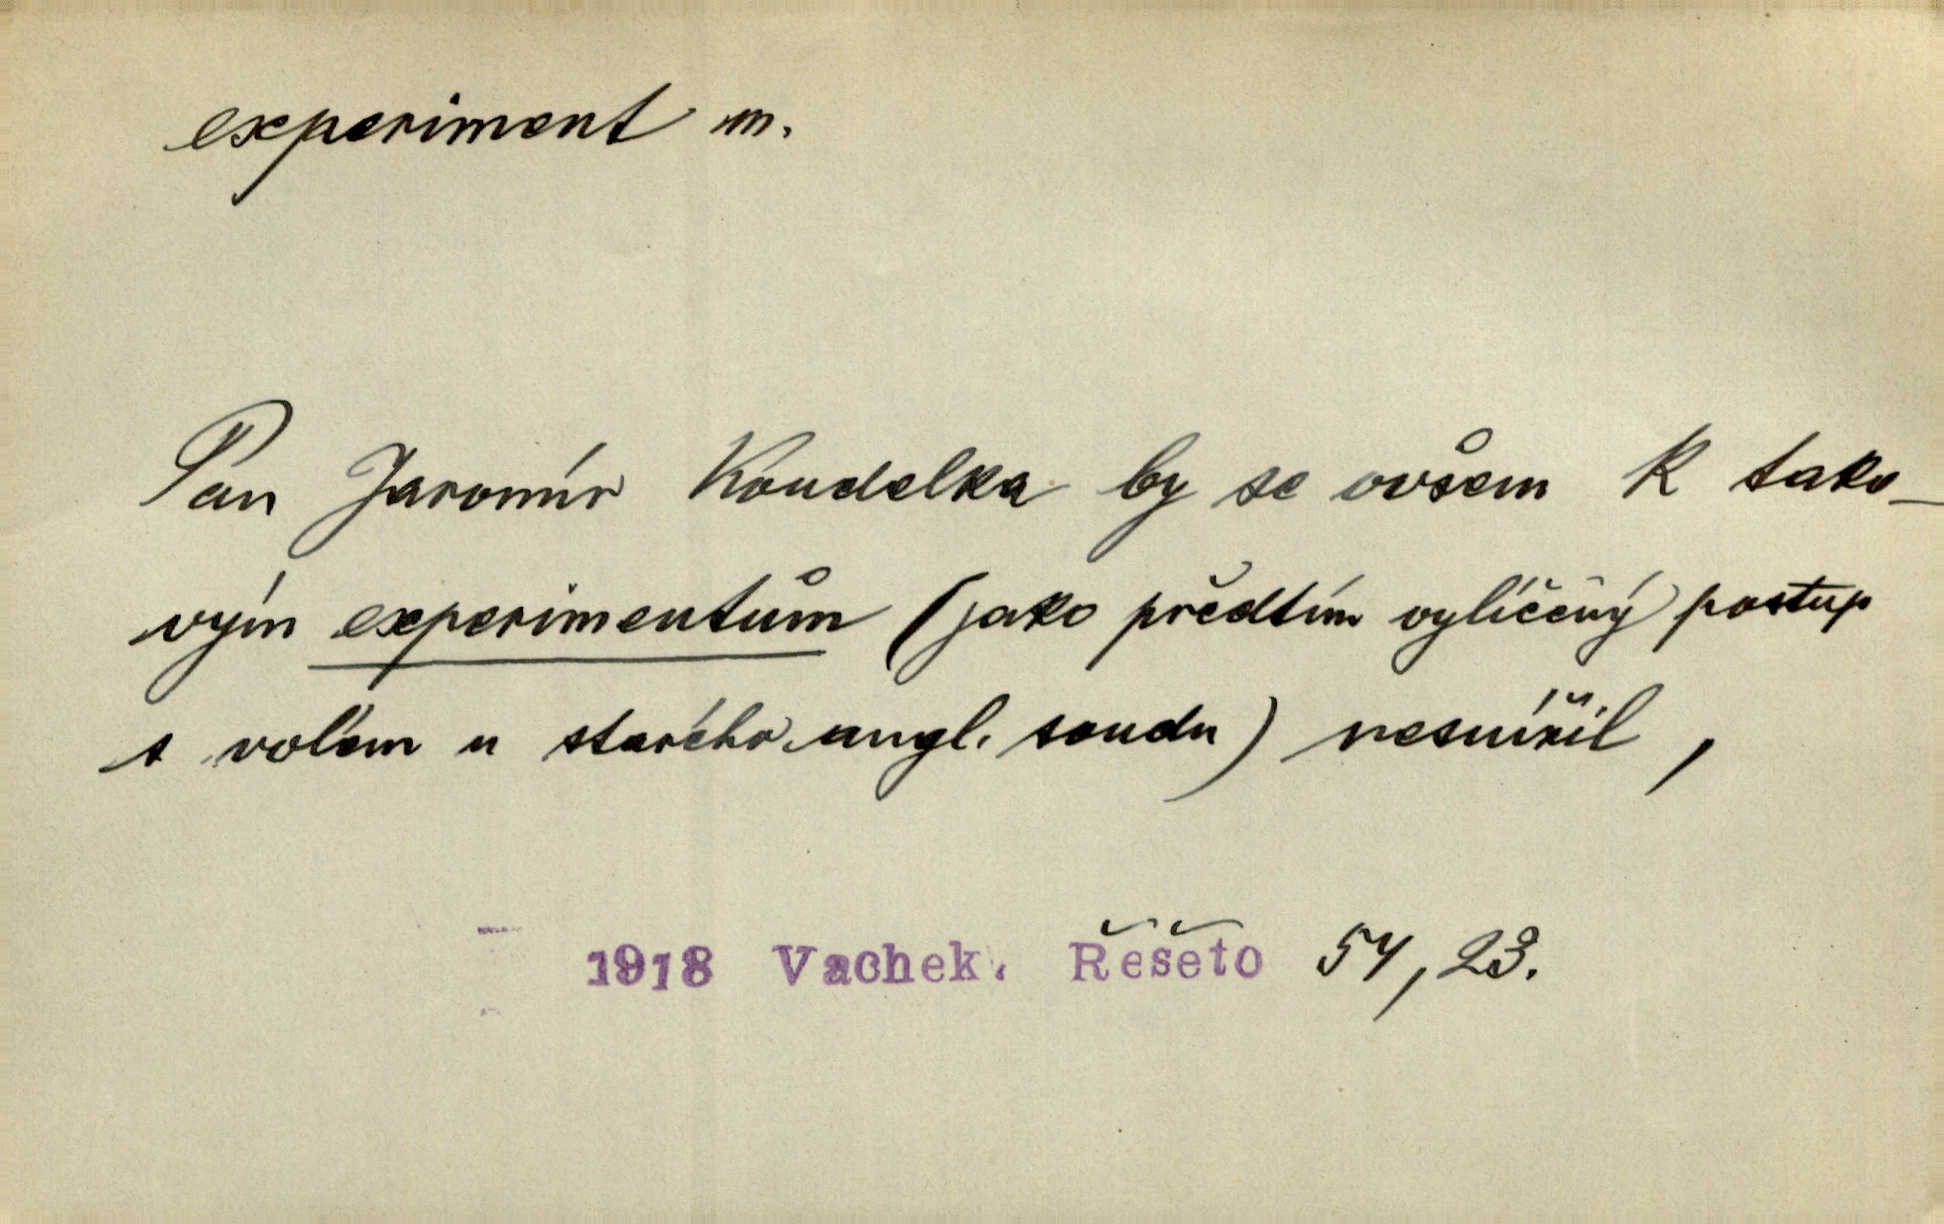 experiment m.
Pan Jaromír Koudelka by se ovšem k tako-
vým experimentům (jako předtím vylíčený postup
s volem u starého angl. soudu) nesnížil,
1918 Vachek. Řešeto 54, 23.